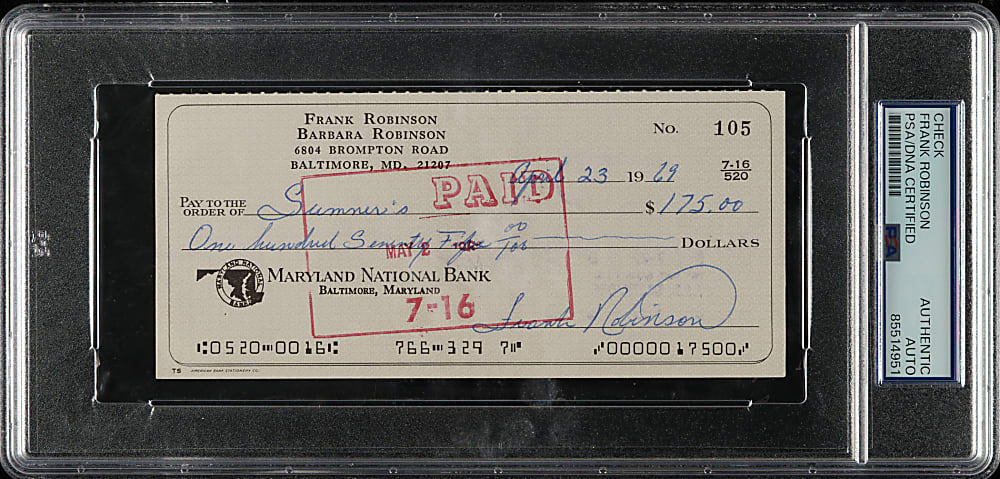 FRANK ROBINSON
BARBARA ROBINSON
6804 BROMPTON ROAD
BALTIMORE, MD. 21207
No. 105
April 23 19 69
7-16
520
PAID
PAY TO THE
ORDER OF Sumner's $ 175.00
One hundred Seventy Five 00/100 DOLLARS
MAY 2
MARYLAND NATIONAL BANK
MARYLAND NATIONAL BANK
BALTIMORE, MARYLAND
7-16
Frank Robinson
⑆0520⑉0016⑆ 766⑉329 7⑈ ⑈0000017500⑈
TS AMERICAN BANK STATIONERY CO.
CHECK
FRANK ROBINSON
PSA/DNA CERTIFIED
PSA
AUTHENTIC
AUTO
85514951